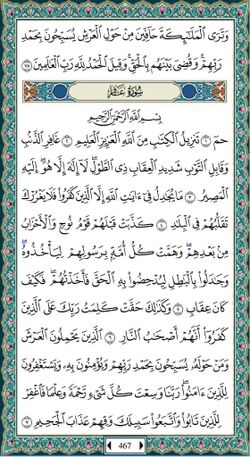 وَتَرَى ٱلْمَلَٰٓئِكَةَ حَآفِّينَ مِنْ حَوْلِ ٱلْعَرْشِ يُسَبِّحُونَ بِحَمْدِ
رَبِّهِمْ وَقُضِىَ بَيْنَهُم بِٱلْحَقِّ وَقِيلَ ٱلْحَمْدُ لِلَّهِ رَبِّ ٱلْعَٰلَمِينَ ٧٥
سُورَةُ غَافِرٍ
بِسْمِ ٱللَّهِ ٱلرَّحْمَٰنِ ٱلرَّحِيمِ
حمٓ ١ تَنزِيلُ ٱلْكِتَٰبِ مِنَ ٱللَّهِ ٱلْعَزِيزِ ٱلْعَلِيمِ ٢ غَافِرِ ٱلذَّنۢبِ
وَقَابِلِ ٱلتَّوْبِ شَدِيدِ ٱلْعِقَابِ ذِى ٱلطَّوْلِ لَآ إِلَٰهَ إِلَّا هُوَ إِلَيْهِ
ٱلْمَصِيرُ ٣ مَا يُجَٰدِلُ فِىٓ ءَايَٰتِ ٱللَّهِ إِلَّا ٱلَّذِينَ كَفَرُوا۟ فَلَا يَغْرُرْكَ
تَقَلُّبُهُمْ فِى ٱلْبِلَٰدِ ٤ كَذَّبَتْ قَبْلَهُمْ قَوْمُ نُوحٍ وَٱلْأَحْزَابُ
مِنۢ بَعْدِهِمْ وَهَمَّتْ كُلُّ أُمَّةٍۭ بِرَسُولِهِمْ لِيَأْخُذُوهُ
وَجَٰدَلُوا۟ بِٱلْبَٰطِلِ لِيُدْحِضُوا۟ بِهِ ٱلْحَقَّ فَأَخَذْتُهُمْ فَكَيْفَ
كَانَ عِقَابِ ٥ وَكَذَٰلِكَ حَقَّتْ كَلِمَتُ رَبِّكَ عَلَى ٱلَّذِينَ
كَفَرُوٓا۟ أَنَّهُمْ أَصْحَٰبُ ٱلنَّارِ ٦ ٱلَّذِينَ يَحْمِلُونَ ٱلْعَرْشَ
وَمَنْ حَوْلَهُۥ يُسَبِّحُونَ بِحَمْدِ رَبِّهِمْ وَيُؤْمِنُونَ بِهِۦ وَيَسْتَغْفِرُونَ
لِلَّذِينَ ءَامَنُوا۟ رَبَّنَا وَسِعْتَ كُلَّ شَىْءٍ رَّحْمَةً وَعِلْمًا فَٱغْفِرْ
لِلَّذِينَ تَابُوا۟ وَٱتَّبَعُوا۟ سَبِيلَكَ وَقِهِمْ عَذَابَ ٱلْجَحِيمِ ٧
467